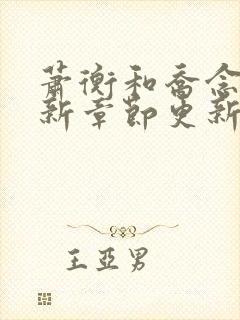 萧衡和乔念
新章节更新
王亚男